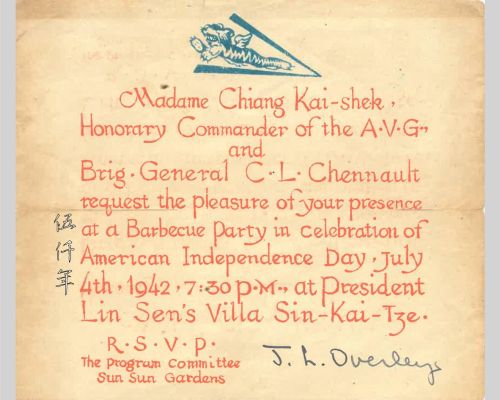 Madame Chiang Kai-shek,
Honorary Commander of the A.V.G.,
and
Brig. General C. L. Chennault
request the pleasure of your presence
at a Barbecue Party in celebration of
American Independence Day, July
4th, 1942, 7:30 P.M., at President
Lin Sen's Villa Sin-Kai-Tze.
R. S. V. P.
The Program Committee
Sun Sun Gardens
J. L. Overley
伍仟年